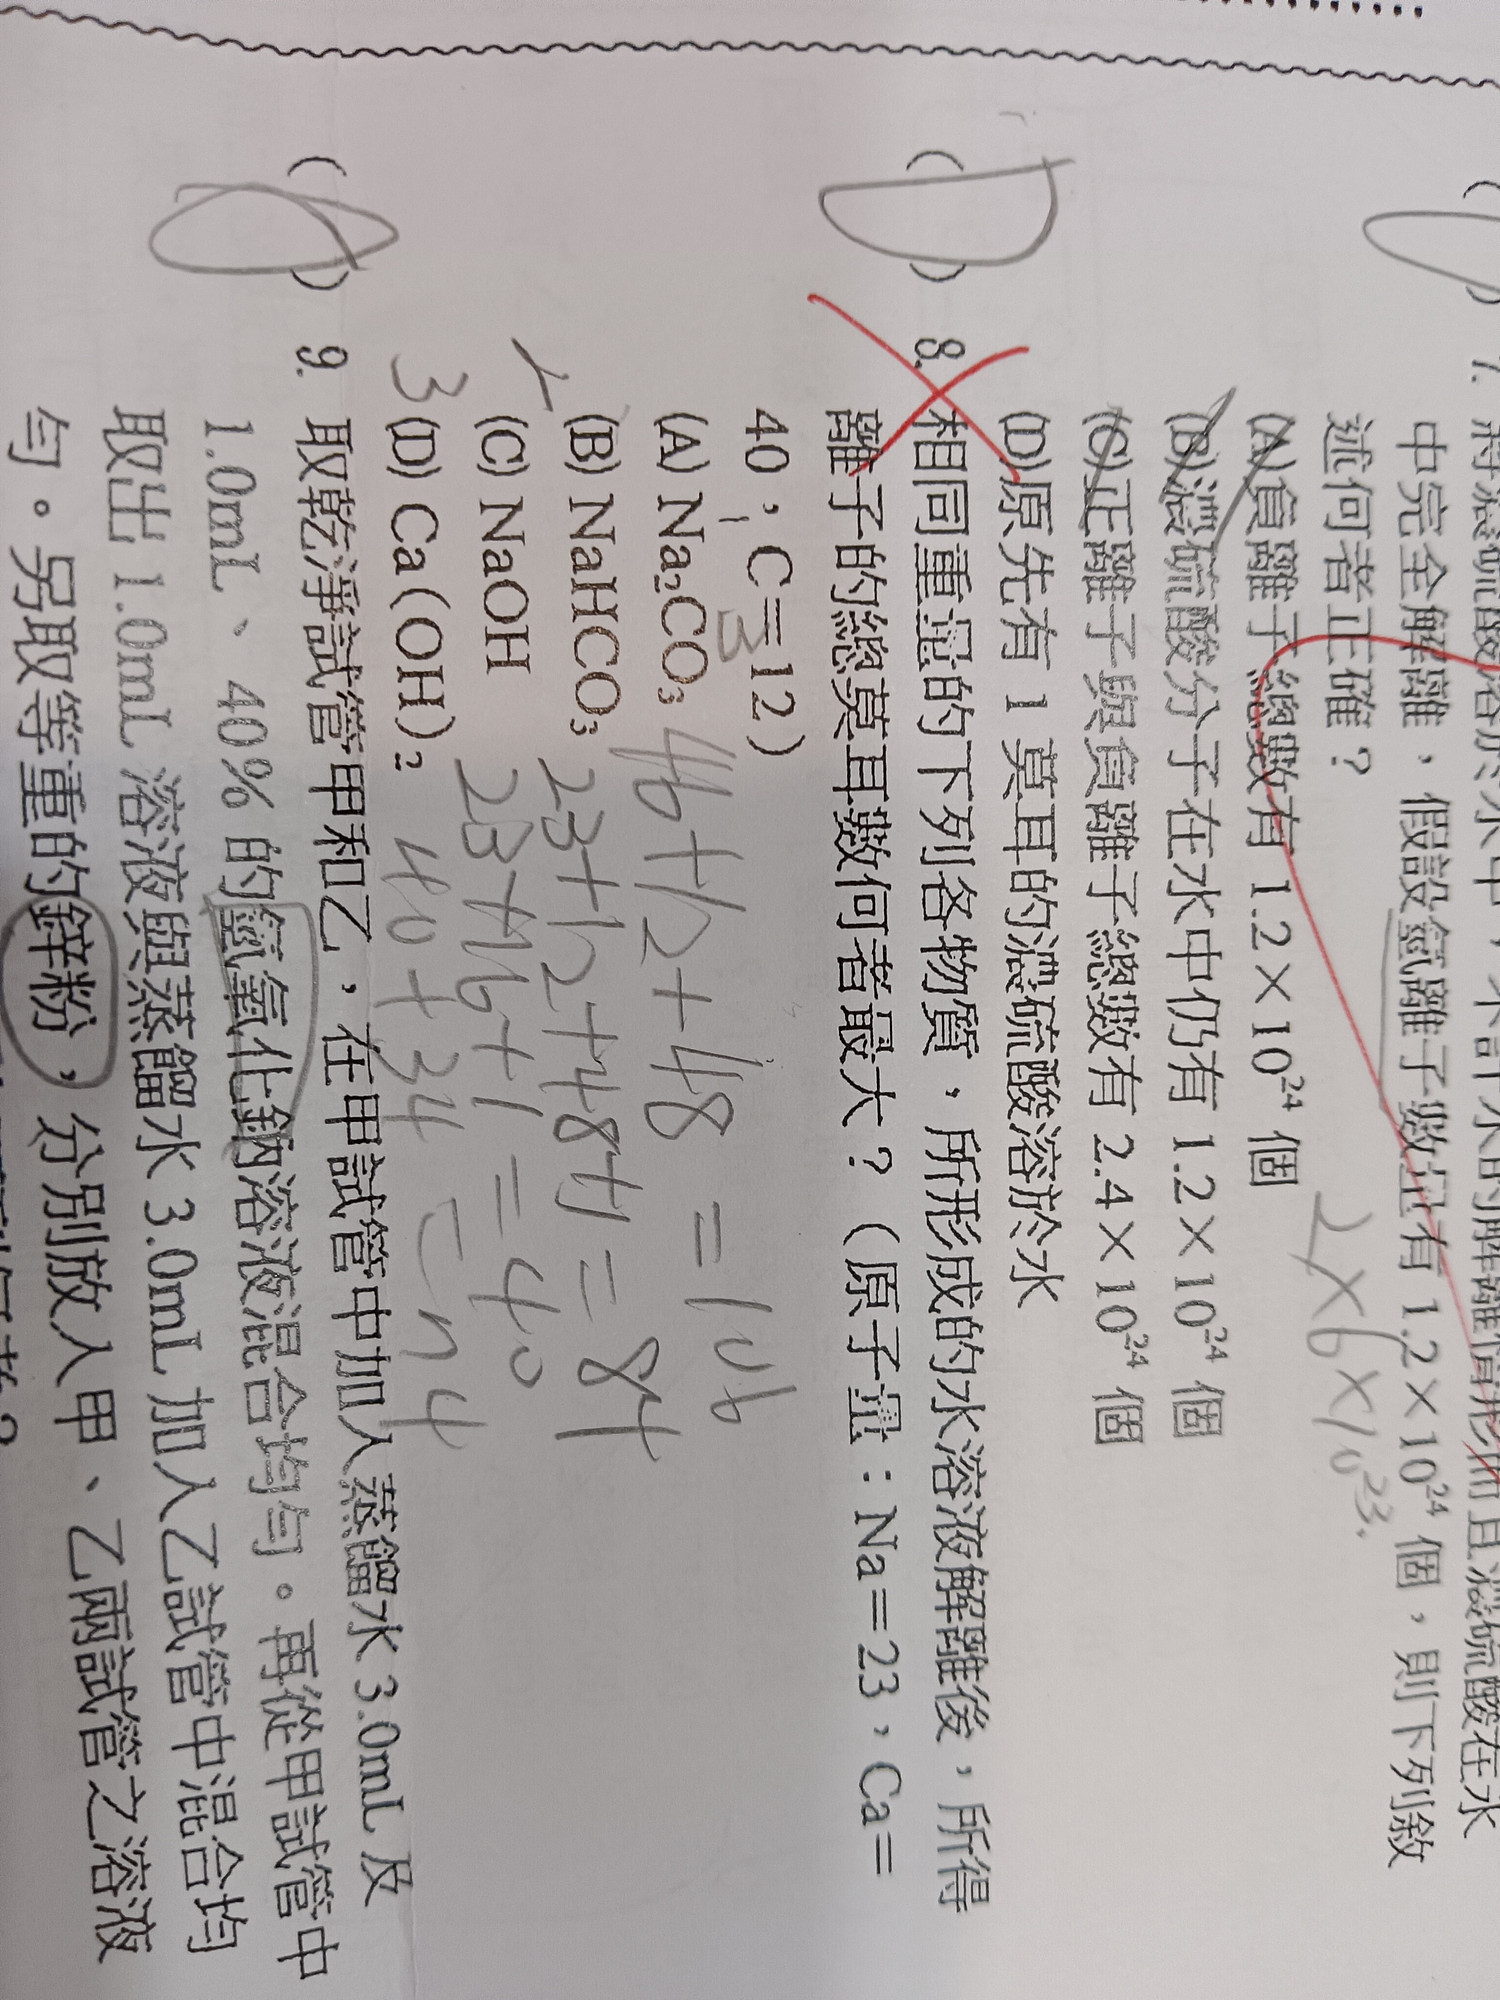 7. 將濃硫酸溶於水中，不計水的解離情形而且濃硫酸在水
中完全解離，假設氫離子數量有 1.2×10²⁴ 個，則下列敘
述何者正確？
2×6×10²³.
(A)負離子總數有 1.2×10²⁴ 個
(B)濃硫酸分子在水中仍有 1.2×10²⁴ 個
(C)正離子與負離子總數有 2.4×10²⁴ 個
(D)原先有 1 莫耳的濃硫酸溶於水
(D) 8. 相同重量的下列各物質，所形成的水溶液解離後，所得
離子的總莫耳數何者最大？（原子量：Na＝23，Ca＝
40，C＝12）
(A) Na₂CO₃ 46+12+48 =106
3
(B) NaHCO₃ 23+12+48+1=84
2 (C) NaOH 23+16+1=40
3 (D) Ca(OH)₂ 40+34=74
( ) 9. 取乾淨試管甲和乙，在甲試管中加入蒸餾水 3.0mL 及
1.0mL、40% 的氫氧化鈉溶液混合均勻。再從甲試管中
取出 1.0mL 溶液與蒸餾水 3.0mL 加入乙試管中混合均
勻。另取等重的鋅粉，分別放入甲、乙兩試管之溶液